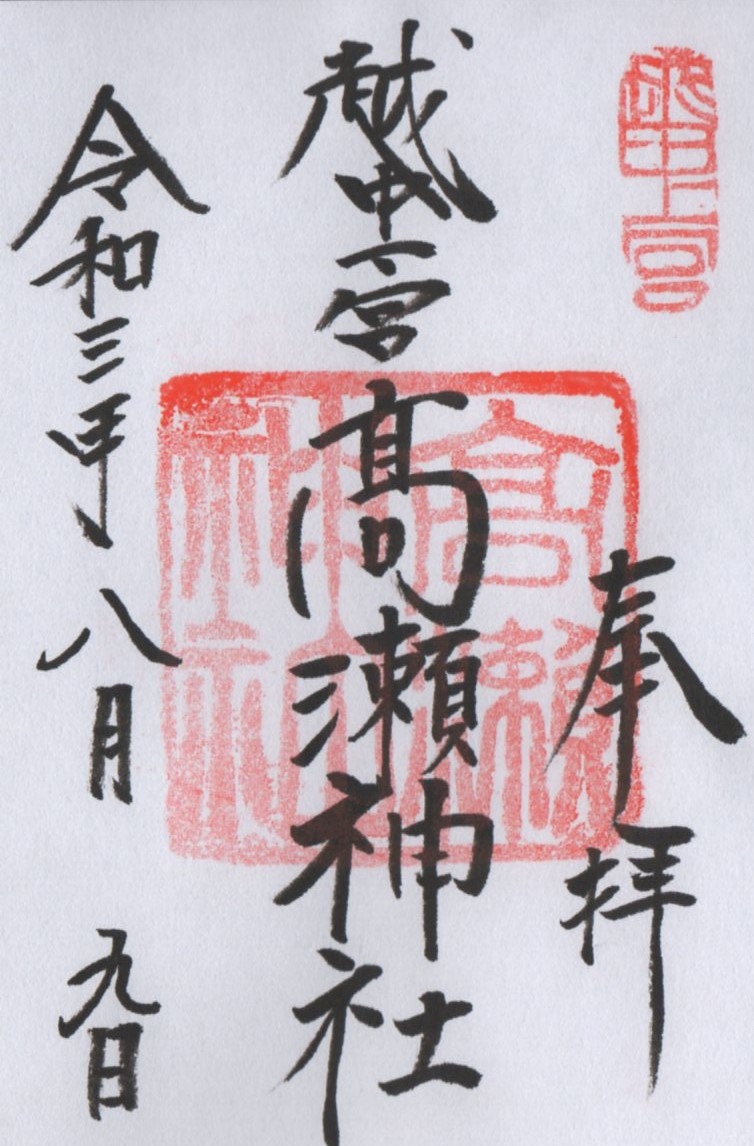 越中一宮
奉拝
越中一宮髙瀬神社
高瀬
神社
令和三年八月九日